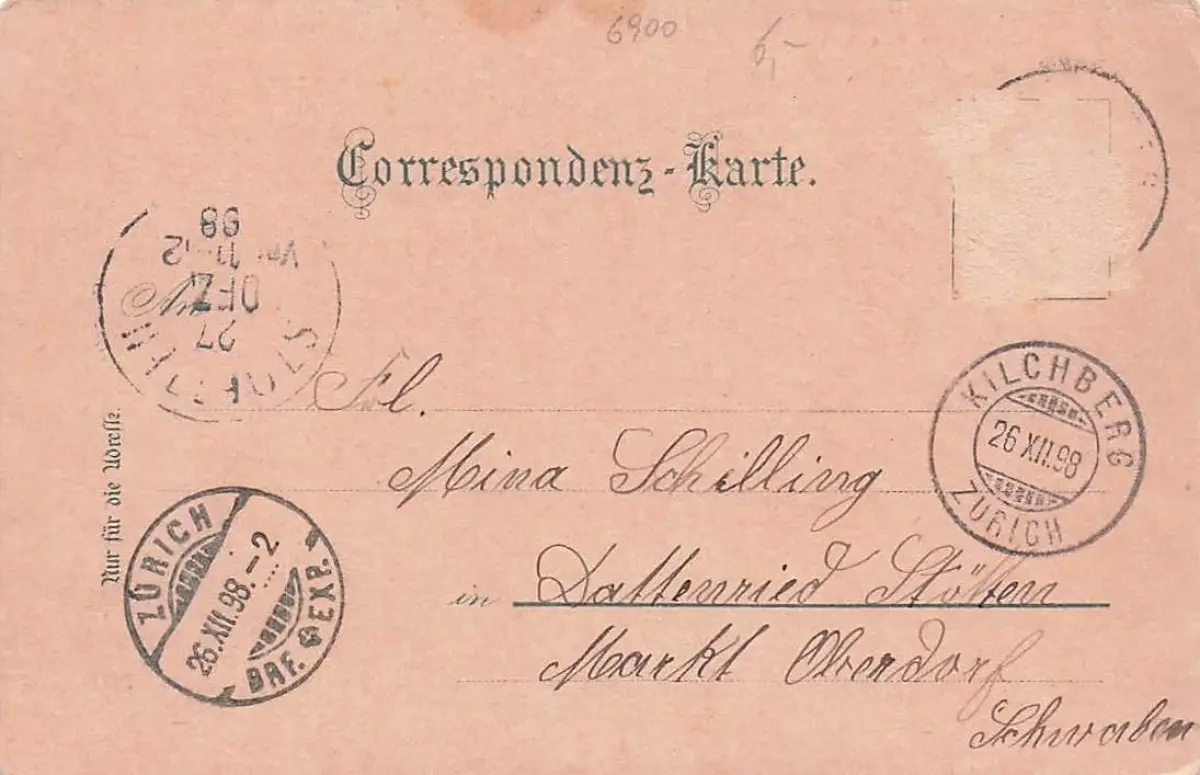 6900
Correspondenz-Karte.
98
Vor. 11-12
DEZ
27
Nur für die Adresse.
Frl.
Mina Schilling
in Dattenried Stötten
Markt Oberdorf
Schwaben
KILCHBERG
26 XII.98
ZÜRICH
ZÜRICH
26.XII.98.-2
BRF. EXP.